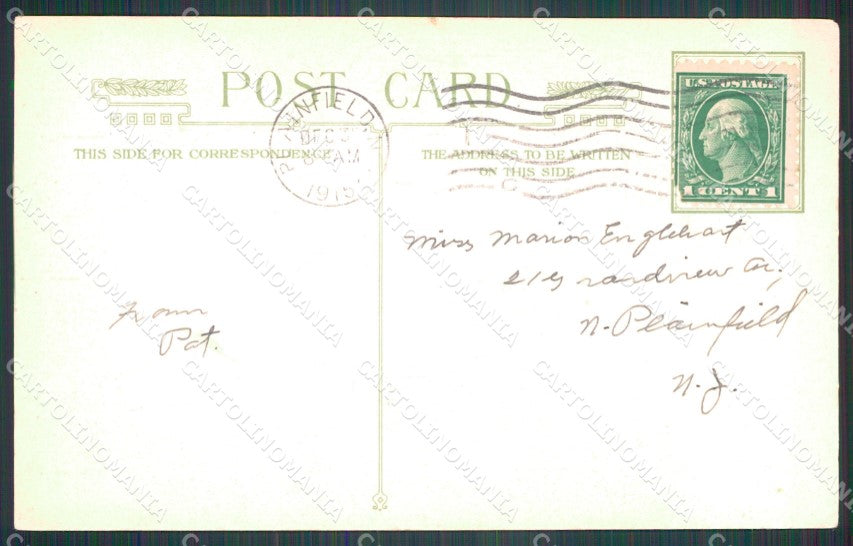 POST CARD
THIS SIDE FOR CORRESPONDENCE
THE ADDRESS TO BE WRITTEN
ON THIS SIDE
PLAINFIELD
DEC
AM
1915
U.S. POSTAGE
1 CENT 1
Miss Marion Englehart
21 Grandview Av.,
N. Plainfield
N. J.
From
Pat.
CARTOLINOMANIA